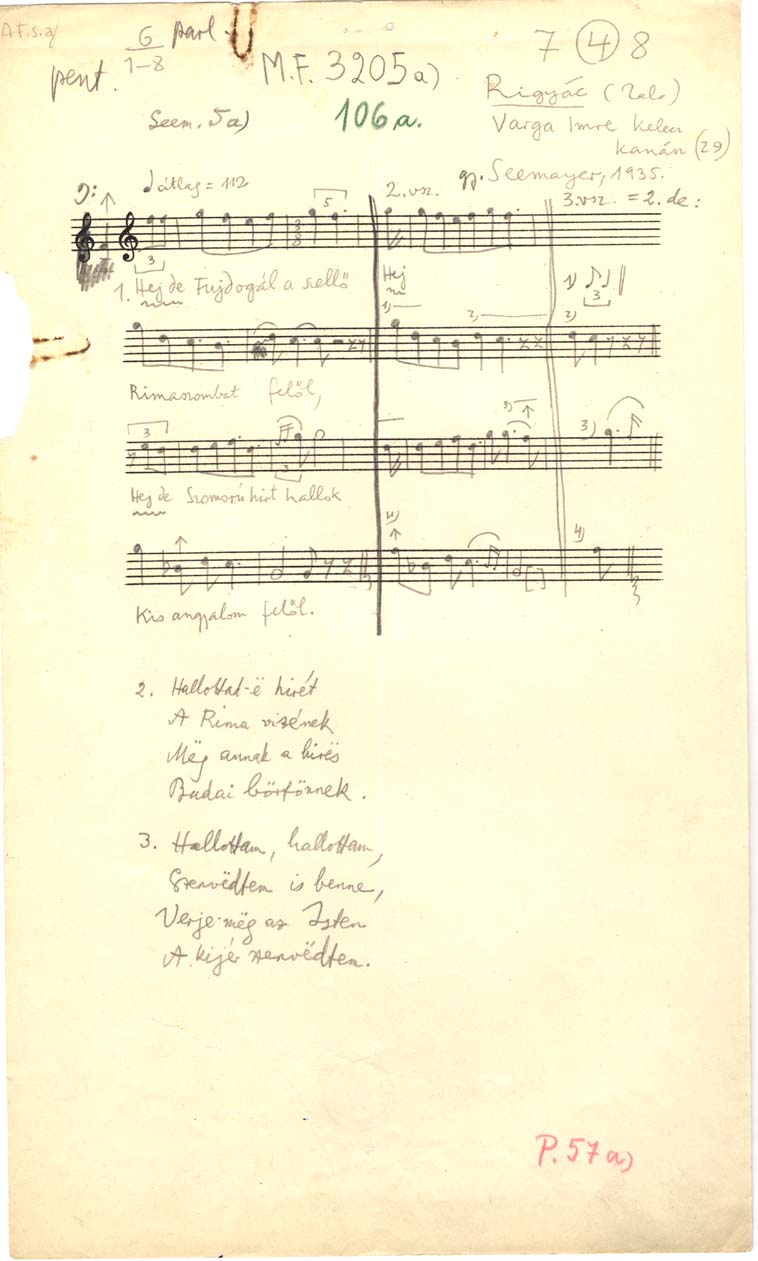 A.F.s.a/
6 parl.
1-8
pent.
M.F. 3205a)
7 4 8
Seem. 5a)
106a.
Rigyác (Zala)
Varga Imre kelen
kanász (29)
gy. Seemayer, 1935.
átlag = 112
2. vsz.
3. vsz. = 2. de:
5
3
8
3
1. Hej de Fujdogál a szellő
Hej
1)
2)
1)
3
2)
Rimaszombat felől,
3
3)
3)
3
Hej de Szomorú hirt hallok
4)
4)
Kis angyalom felől.
2. Hallottad-ë hirét
A Rima vizének
Még annak a hirës
Budai börtönnek.
3. Hallottam, hallottam,
Szenvëdtem is benne,
Verje mëg az Isten
A kijér szenvëdtem.
P. 57a)